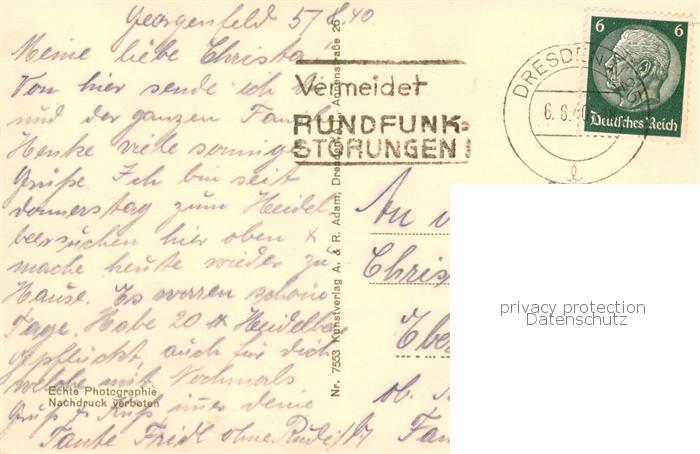 Georgenfeld 5/8.40
Meine liebe Christa
Von hier sende ich dir
und der ganzen Famil
Henke viele sonnige
Grüße. Ich bin seit
Donnerstag zum Heidel
beersuchen hier oben &
mache heute wieder zu
Hause. Es waren schöne
Tage. Habe 20 Heidelb
gepflückt auch für dich
welche mit Nochmals
Gruß & Kuß, deine
Tante Friedl ohne
Vermeidet
RUNDFUNK-
STÖRUNGEN!
DRESDEN
6.8.40
6 6
Deutsches Reich
Nr. 7553 Kunstverlag A. & R. Adam, Dresden
Echte Photographie
Nachdruck verboten
An
Chris
Ebe
ob.
privacy protection
Datenschutz